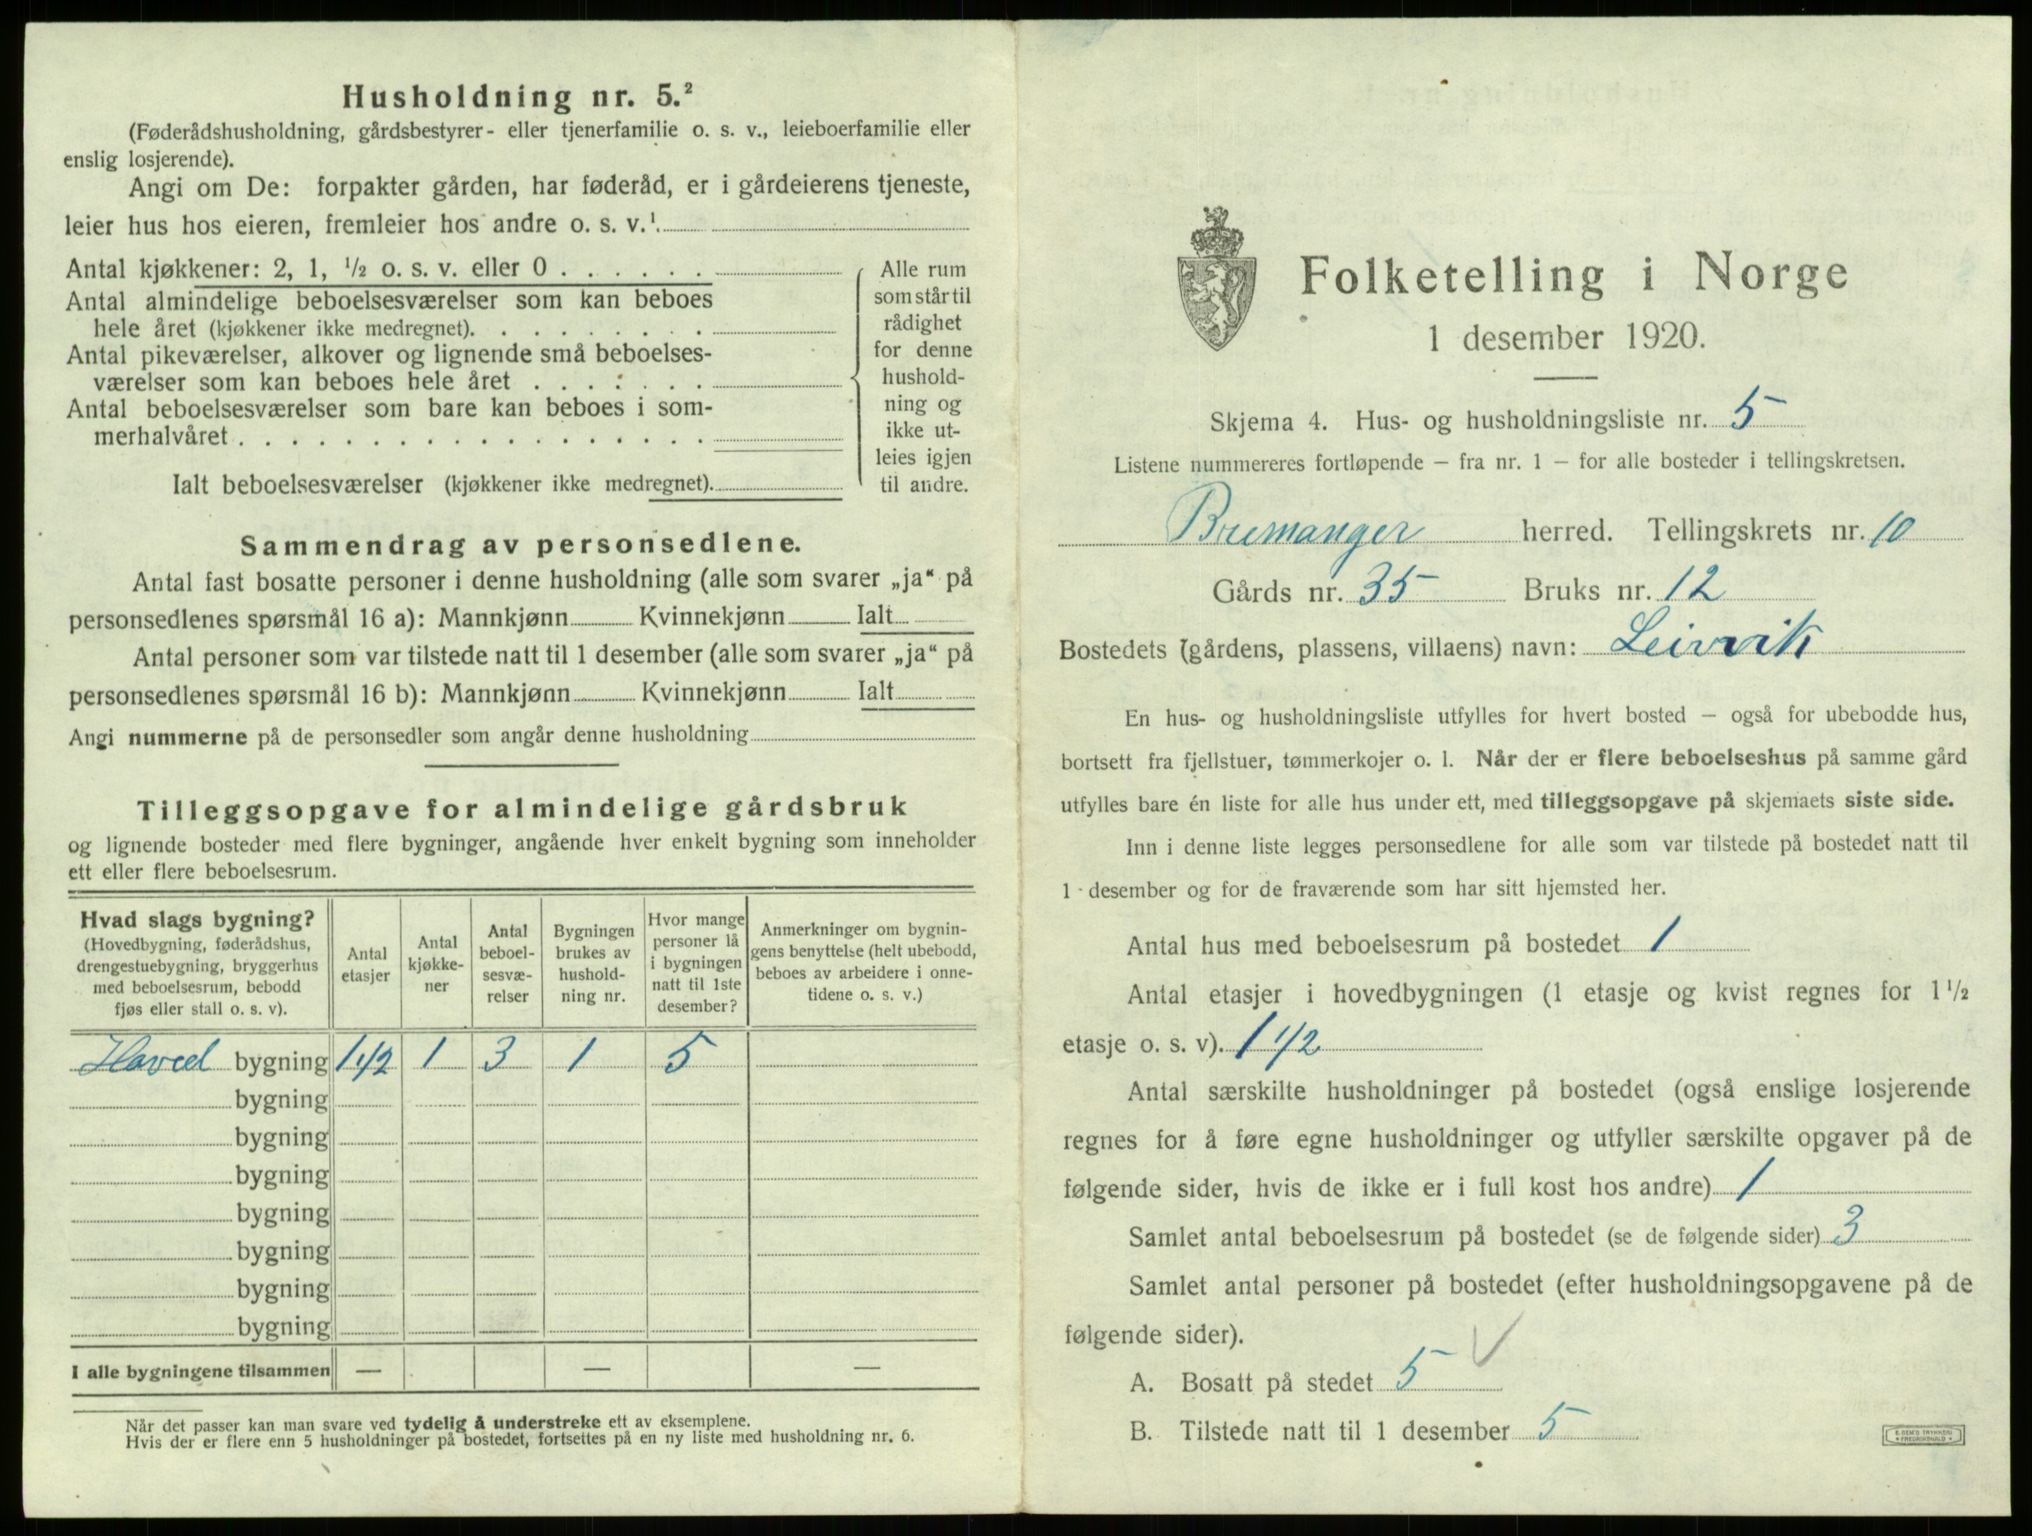 Husholdning nr. 5.²
(Føderådshusholdning, gårdsbestyrer- eller tjenerfamilie o. s. v., leieboerfamilie eller
enslig losjerende).
Angi om De: forpakter gården, har føderåd, er i gårdeierens tjeneste,
leier hus hos eieren, fremleier hos andre o. s. v.¹
Antal kjøkkener: 2, 1, ½ o. s. v. eller 0 . . . . . .
Antal almindelige beboelsesværelser som kan beboes
hele året (kjøkkener ikke medregnet). . . . . . . . .
Antal pikeværelser, alkover og lignende små beboelses-
værelser som kan beboes hele året . . . . . . .
Antal beboelsesværelser som bare kan beboes i som-
merhalvåret . . . . . . . . . . . . . . . . . .
Ialt beboelsesværelser (kjøkkener ikke medregnet).
Alle rum
som står til
rådighet
for denne
hushold-
ning og
ikke ut-
leies igjen
til andre.
Sammendrag av personsedlene.
Antal fast bosatte personer i denne husholdning (alle som svarer „ja“ på
personsedlenes spørsmål 16 a): Mannkjønn Kvinnekjønn Ialt
Antal personer som var tilstede natt til 1 desember (alle som svarer „ja“ på
personsedlenes spørsmål 16 b): Mannkjønn Kvinnekjønn Ialt
Angi nummerne på de personsedler som angår denne husholdning
Tilleggsopgave for almindelige gårdsbruk
og lignende bosteder med flere bygninger, angående hver enkelt bygning som inneholder
ett eller flere beboelsesrum.
Hvad slags bygning?
(Hovedbygning, føderådshus,
drengestuebygning, bryggerhus
med beboelsesrum, bebodd
fjøs eller stall o. s. v).
Antal
etasjer
Antal
kjøkke-
ner
Antal
beboel-
sesvæ-
relser
Bygningen
brukes av
hushold-
ning nr.
Hvor mange
personer lå
i bygningen
natt til 1ste
desember?
Anmerkninger om bygnin-
gens benyttelse (helt ubebodd,
beboes av arbeidere i onne-
tidene o. s. v.)
Hoved bygning 1 1/2 1 3 1 5
bygning
bygning
bygning
bygning
bygning
bygning
bygning
I alle bygningene tilsammen — — —
Når det passer kan man svare ved tydelig å understreke ett av eksemplene.
Hvis der er flere enn 5 husholdninger på bostedet, fortsettes på en ny liste med husholdning nr. 6.
Folketelling i Norge
1 desember 1920.
Skjema 4. Hus- og husholdningsliste nr. 5
Listene nummereres fortløpende – fra nr. 1 – for alle bosteder i tellingskretsen.
Bremanger herred. Tellingskrets nr. 10
Gårds nr. 35 Bruks nr. 12
Bostedets (gårdens, plassens, villaens) navn: Leirvik
En hus- og husholdningsliste utfylles for hvert bosted – også for ubebodde hus,
bortsett fra fjellstuer, tømmerkojer o. l. Når der er flere beboelseshus på samme gård
utfylles bare én liste for alle hus under ett, med tilleggsopgave på skjemaets siste side.
Inn i denne liste legges personsedlene for alle som var tilstede på bostedet natt til
1 desember og for de fraværende som har sitt hjemsted her.
Antal hus med beboelsesrum på bostedet 1
Antal etasjer i hovedbygningen (1 etasje og kvist regnes for 1 ½
etasje o. s. v). 1 1/2
Antal særskilte husholdninger på bostedet (også enslige losjerende
regnes for å føre egne husholdninger og utfyller særskilte opgaver på de
følgende sider, hvis de ikke er i full kost hos andre) 1
Samlet antal beboelsesrum på bostedet (se de følgende sider) 3
Samlet antal personer på bostedet (efter husholdningsopgavene på de
følgende sider).
A. Bosatt på stedet 5 ✓
B. Tilstede natt til 1 desember 5